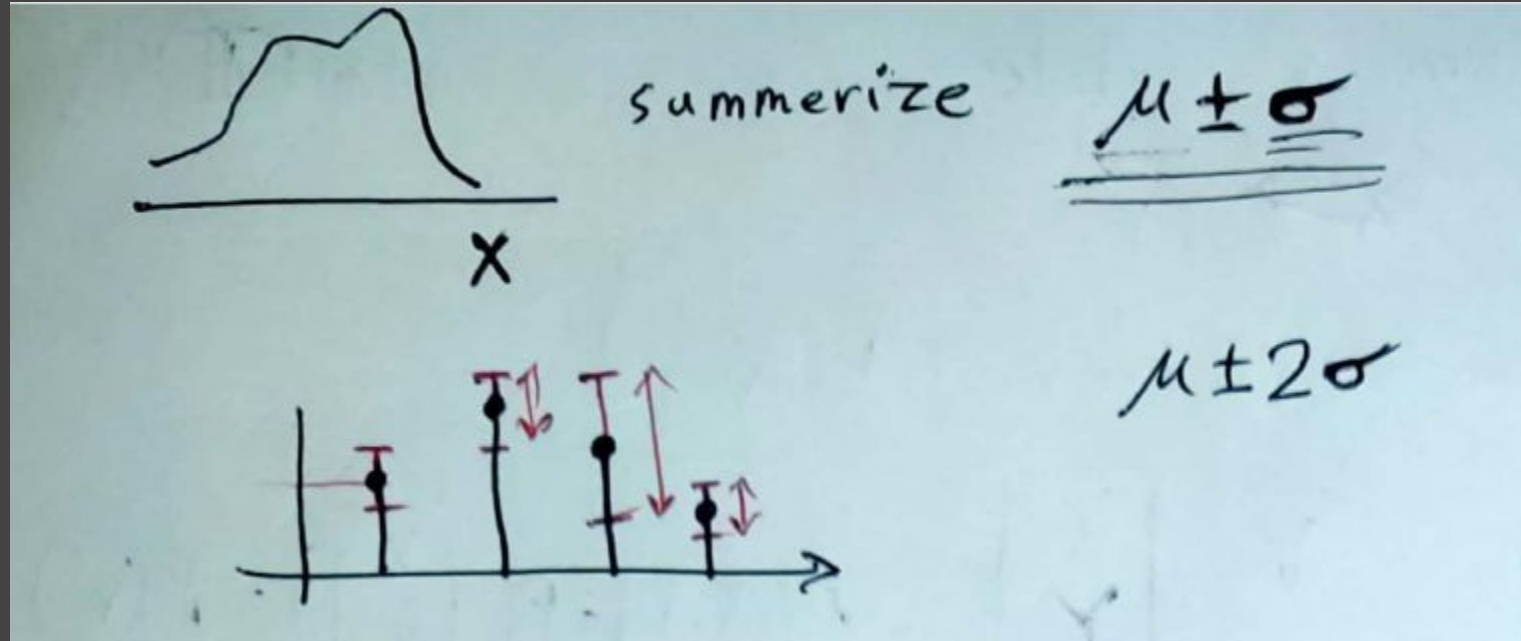 summerize μ ± σ
X
μ ± 2σ